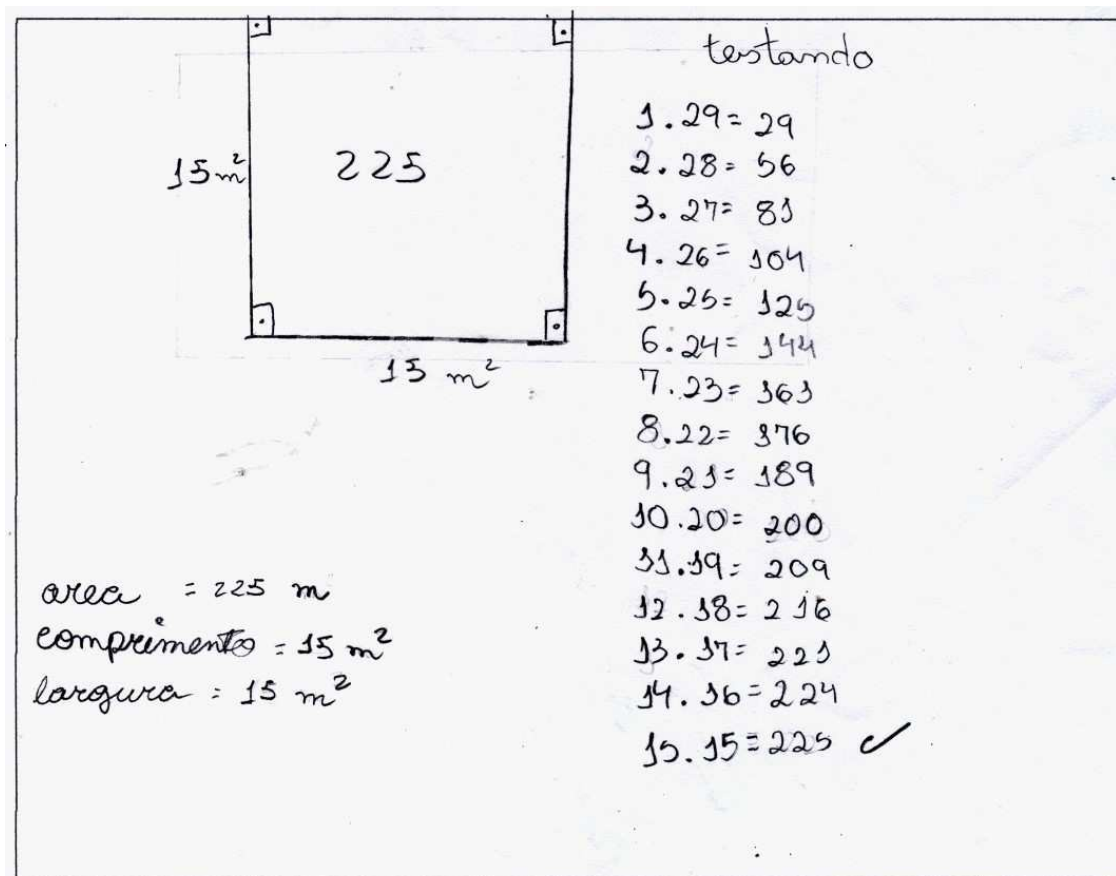 testando
15 m²
225
15 m²
1 . 29 = 29
2 . 28 = 56
3 . 27 = 81
4 . 26 = 104
5 . 25 = 125
6 . 24 = 144
7 . 23 = 161
8 . 22 = 176
9 . 21 = 189
10 . 20 = 200
11 . 19 = 209
12 . 18 = 216
13 . 17 = 221
14 . 16 = 224
15 . 15 = 225 ✓
area = 225 m
comprimento = 15 m²
largura = 15 m²